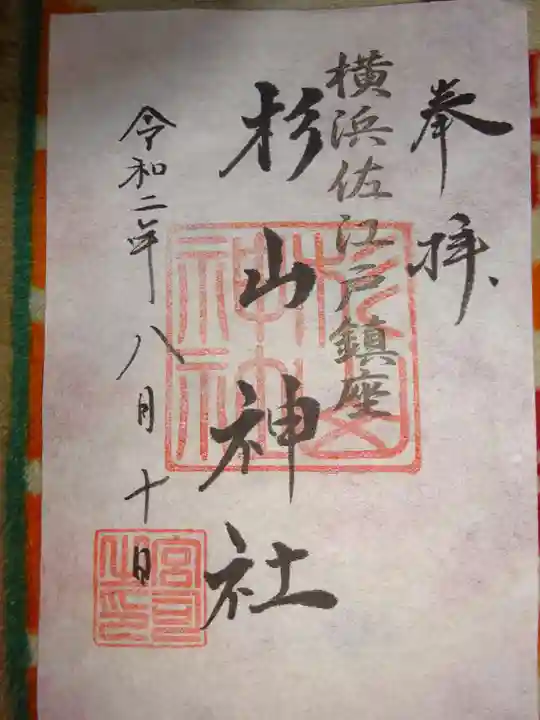 奉拝
横浜佐江戸鎮座
杉山神社
令和二年八月十日
杉山神社
宮司之印